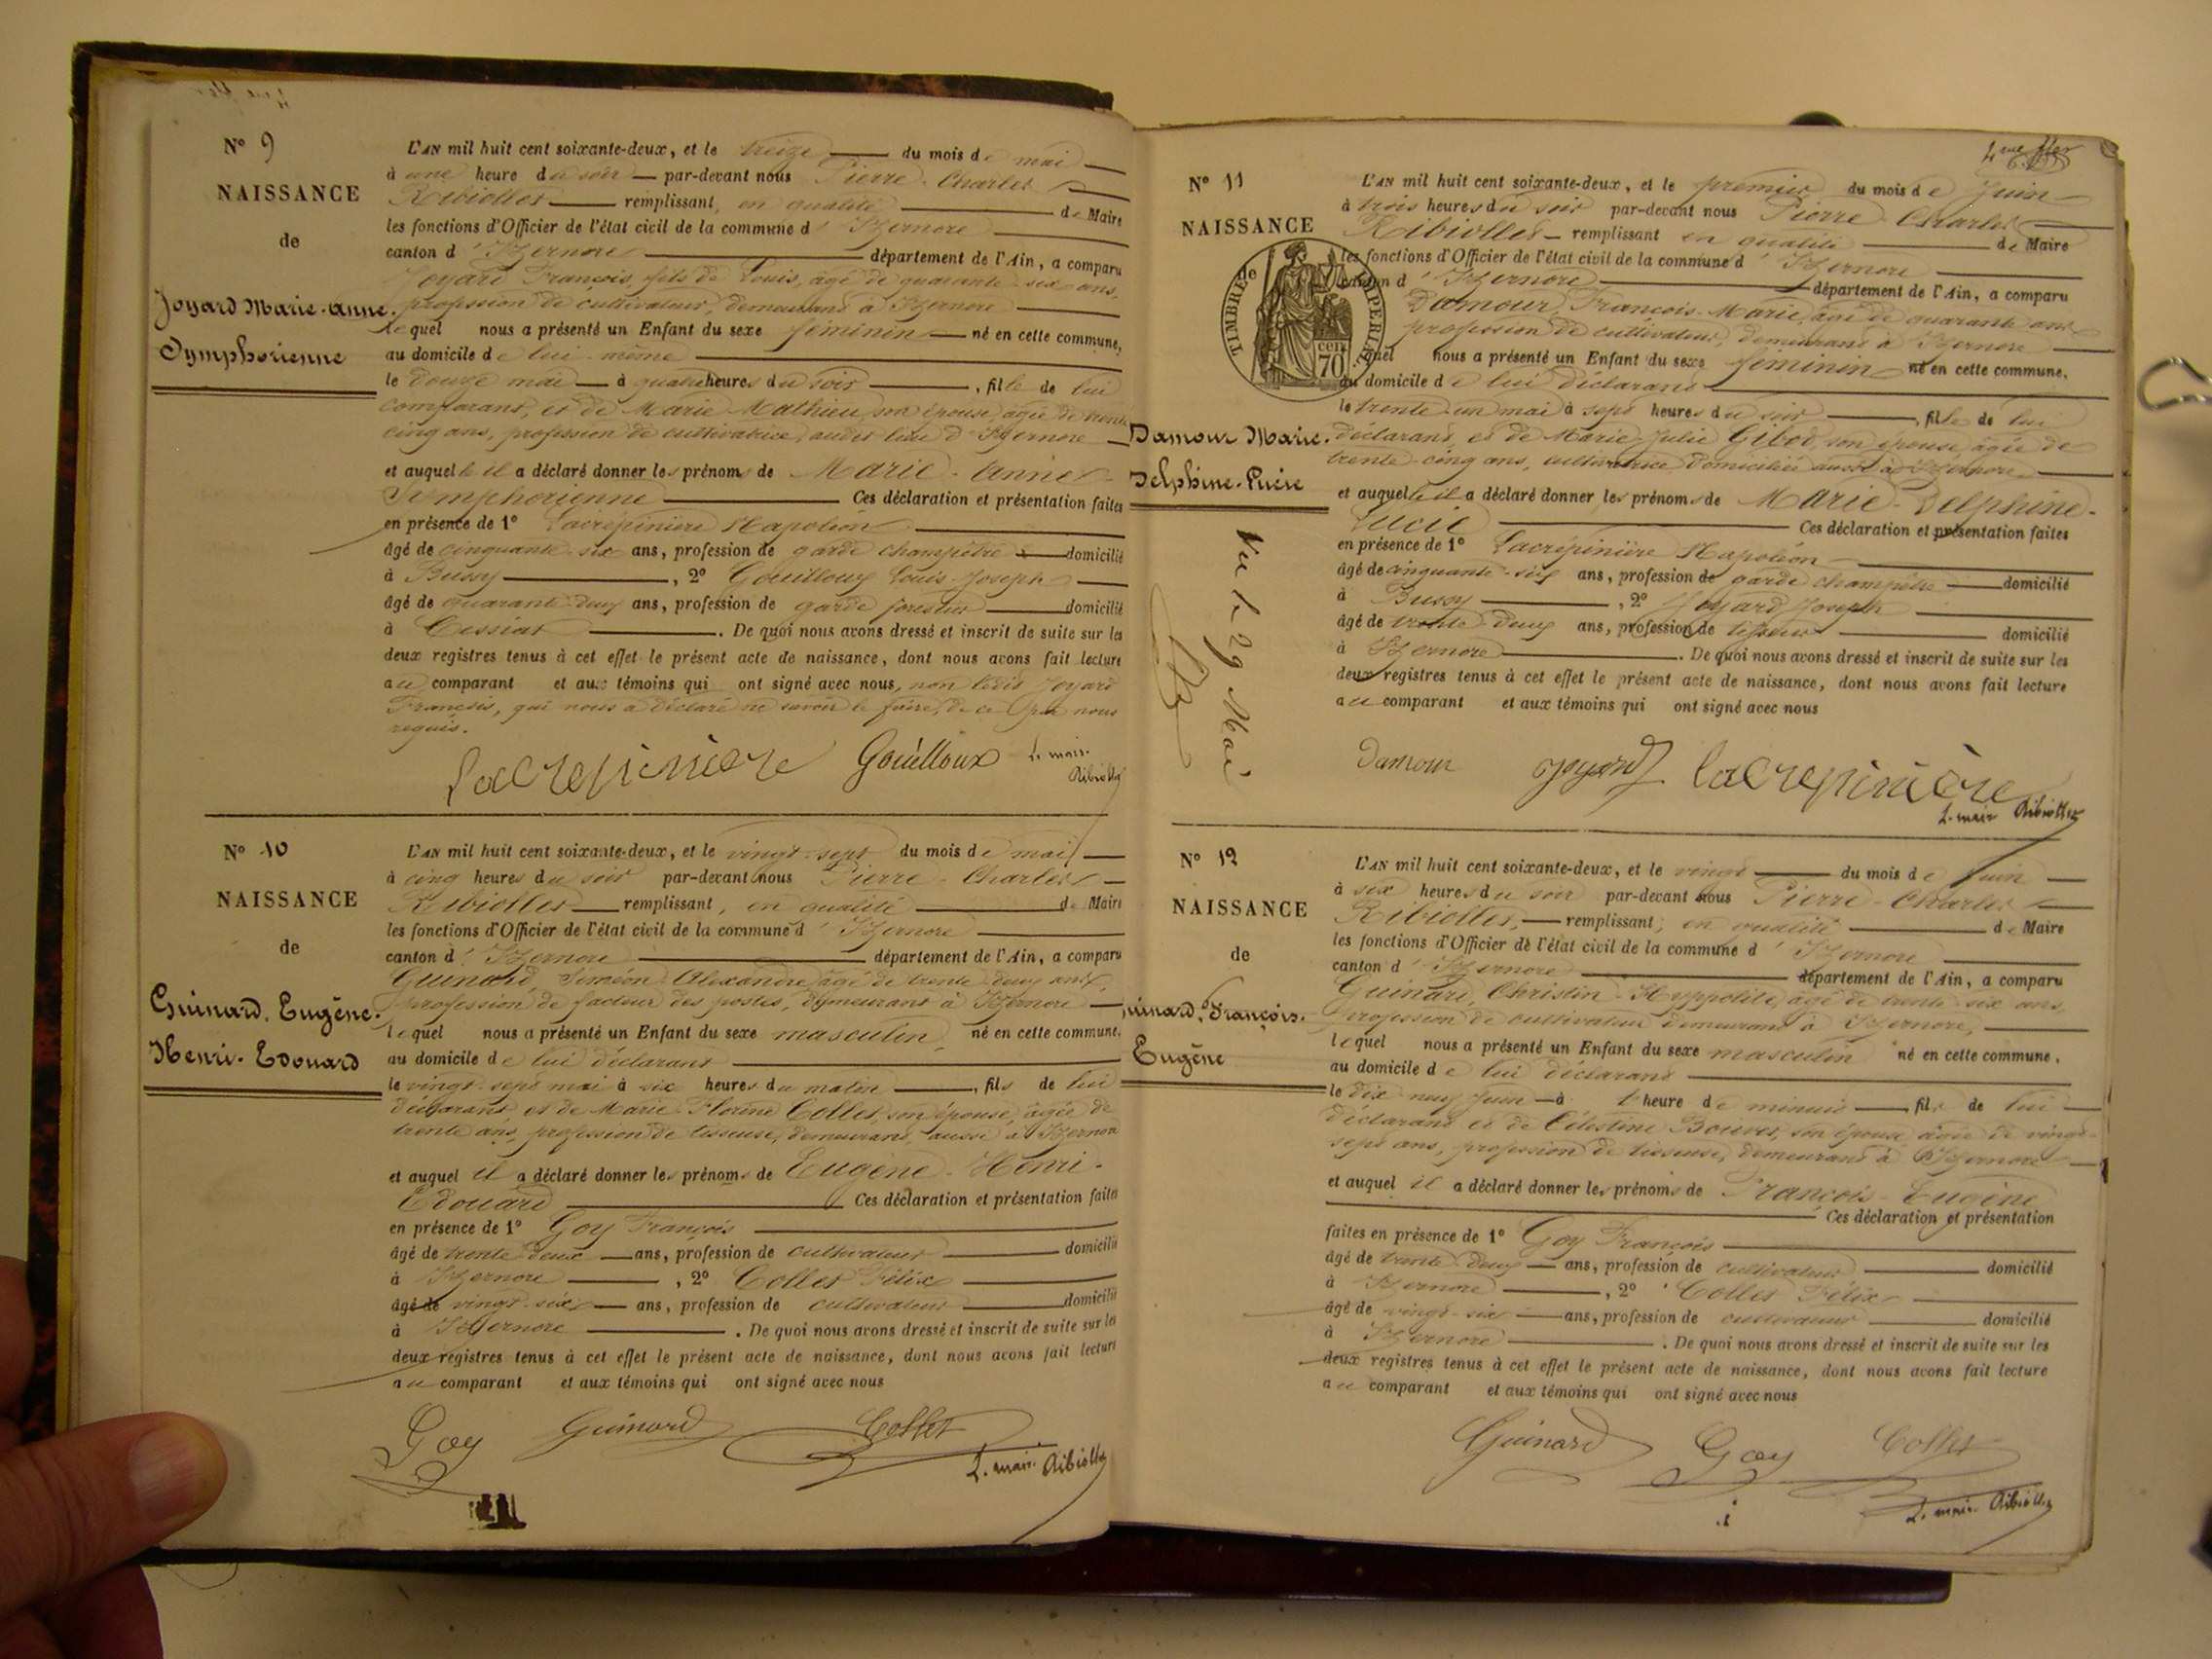 N° 9
NAISSANCE
de
Joyard Marie-Anne.
Symphorienne
L'AN mil huit cent soixante-deux, et le treize du mois de mai
à une heure du soir par-devant nous Pierre-Charles
Ribiollet remplissant, en qualité de Maire
les fonctions d'Officier de l'état civil de la commune d'Izernore
canton d'Izernore département de l'Ain, a comparu
Joyard François, fils de Louis, âgé de quarante-six ans,
profession de cultivateur, demeurant à Izernore
lequel nous a présenté un Enfant du sexe féminin né en cette commune,
au domicile de lui-même
le douze mai à quatre heures du soir, fille de lui
comparant, et de Marie Mathieu, son épouse, âgée de trente
cinq ans, profession de cultivatrice, audit lieu d'Izernore
et auquel il a déclaré donner les prénoms de Marie-Anne
Symphorienne Ces déclaration et présentation faites
en présence de 1° Lacrépinière Napoléon
âgé de cinquante-six ans, profession de garde champêtre domicilié
à Bussy, 2° Gouilloux Louis-Joseph
âgé de quarante-deux ans, profession de garde forestier domicilié
à Cessiat. De quoi nous avons dressé et inscrit de suite sur les
deux registres tenus à cet effet le présent acte de naissance, dont nous avons fait lecture
au comparant et aux témoins qui ont signé avec nous, non ledit Joyard
François, qui nous a déclaré ne savoir le faire, de ce par nous
requis.
Lacrepinière Gouilloux L. maire Ribiollet
N° 10
NAISSANCE
de
Guinard, Eugène.
Henri-Edouard
L'AN mil huit cent soixante-deux, et le vingt-sept du mois de mai
à cinq heures du soir par-devant nous Pierre-Charles
Ribiollet remplissant, en qualité de Maire
les fonctions d'Officier de l'état civil de la commune d'Izernore
canton d'Izernore département de l'Ain, a comparu
Guinard, Siméon-Alexandre, âgé de trente-deux ans,
profession de facteur des postes, demeurant à Izernore
lequel nous a présenté un Enfant du sexe masculin, né en cette commune.
au domicile de lui déclarant
le vingt-sept mai à six heures du matin, fils de lui
déclarant et de Marie-Florine Collet, son épouse, âgée de
trente ans, profession de tisseuse, demeurant aussi à Izernore
et auquel il a déclaré donner les prénoms de Eugène-Henri-
Edouard Ces déclaration et présentation faites
en présence de 1° Goy François
âgé de trente deux ans, profession de cultivateur domicilié
à Izernore, 2° Collet Félix
âgé de vingt-six ans, profession de cultivateur domicilié
à Izernore. De quoi nous avons dressé et inscrit de suite sur les
deux registres tenus à cet effet le présent acte de naissance, dont nous avons fait lecture
au comparant et aux témoins qui ont signé avec nous
Goy Guinard Collet
L. maire Ribiollet
N° 11
NAISSANCE
de
TIMBRE IMPERIAL
70 cen
Damour Marie.
Delphine-Lucie
Vu le 29 Mai
L'AN mil huit cent soixante-deux, et le premier du mois de Juin
à trois heures du soir par-devant nous Pierre-Charles
Ribiollet remplissant en qualité de Maire
les fonctions d'Officier de l'état civil de la commune d'Izernore
canton d'Izernore département de l'Ain, a comparu
Damour, François-Marie, âgé de quarante ans
profession de cultivateur, demeurant à Izernore
lequel nous a présenté un Enfant du sexe féminin né en cette commune.
au domicile de lui déclarant
le trente-un mai à sept heures du soir, fille de lui
déclarant, et de Marie-Julie Gibod, son épouse, âgée de
trente-cinq ans, cultivatrice domiciliée aussi à Izernore
et auquel il a déclaré donner les prénoms de Marie-Delphine-
Lucie Ces déclaration et présentation faites
en présence de 1° Lacrépinière Napoléon
âgé de cinquante-six ans, profession de garde champêtre domicilié
à Bussy, 2° Joyard Joseph
âgé de trente-deux ans, profession de tisseur domicilié
à Izernore. De quoi nous avons dressé et inscrit de suite sur les
deux registres tenus à cet effet le présent acte de naissance, dont nous avons fait lecture
au comparant et aux témoins qui ont signé avec nous
Damour Joyard Lacrepinière
L. maire Ribiollet
N° 12
NAISSANCE
de
Guinard, François.
Eugène
L'AN mil huit cent soixante-deux, et le vingt du mois de Juin
à six heures du soir par-devant nous Pierre-Charles
Ribiollet, remplissant, en qualité de Maire
les fonctions d'Officier de l'état civil de la commune d'Izernore
canton d'Izernore département de l'Ain, a comparu
Guinard, Christin-Hyppolite, âgé de trente-six ans,
profession de cultivateur demeurant à Izernore,
lequel nous a présenté un Enfant du sexe masculin né en cette commune,
au domicile de lui déclarant
le dix neuf Juin à l'heure de minuit, fils de lui
déclarant et de Célestine Bouvet, son épouse, âgée de vingt-
sept ans, profession de tisseuse, demeurant à Izernore
et auquel il a déclaré donner les prénoms de François-Eugène
Ces déclaration et présentation
faites en présence de 1° Goy François
âgé de trente-deux ans, profession de cultivateur domicilié
à Izernore, 2° Collet Félix
âgé de vingt-six ans, profession de cultivateur domicilié
à Izernore. De quoi nous avons dressé et inscrit de suite sur les
deux registres tenus à cet effet le présent acte de naissance, dont nous avons fait lecture
au comparant et aux témoins qui ont signé avec nous
Guinard Goy Collet
L. maire Ribiollet